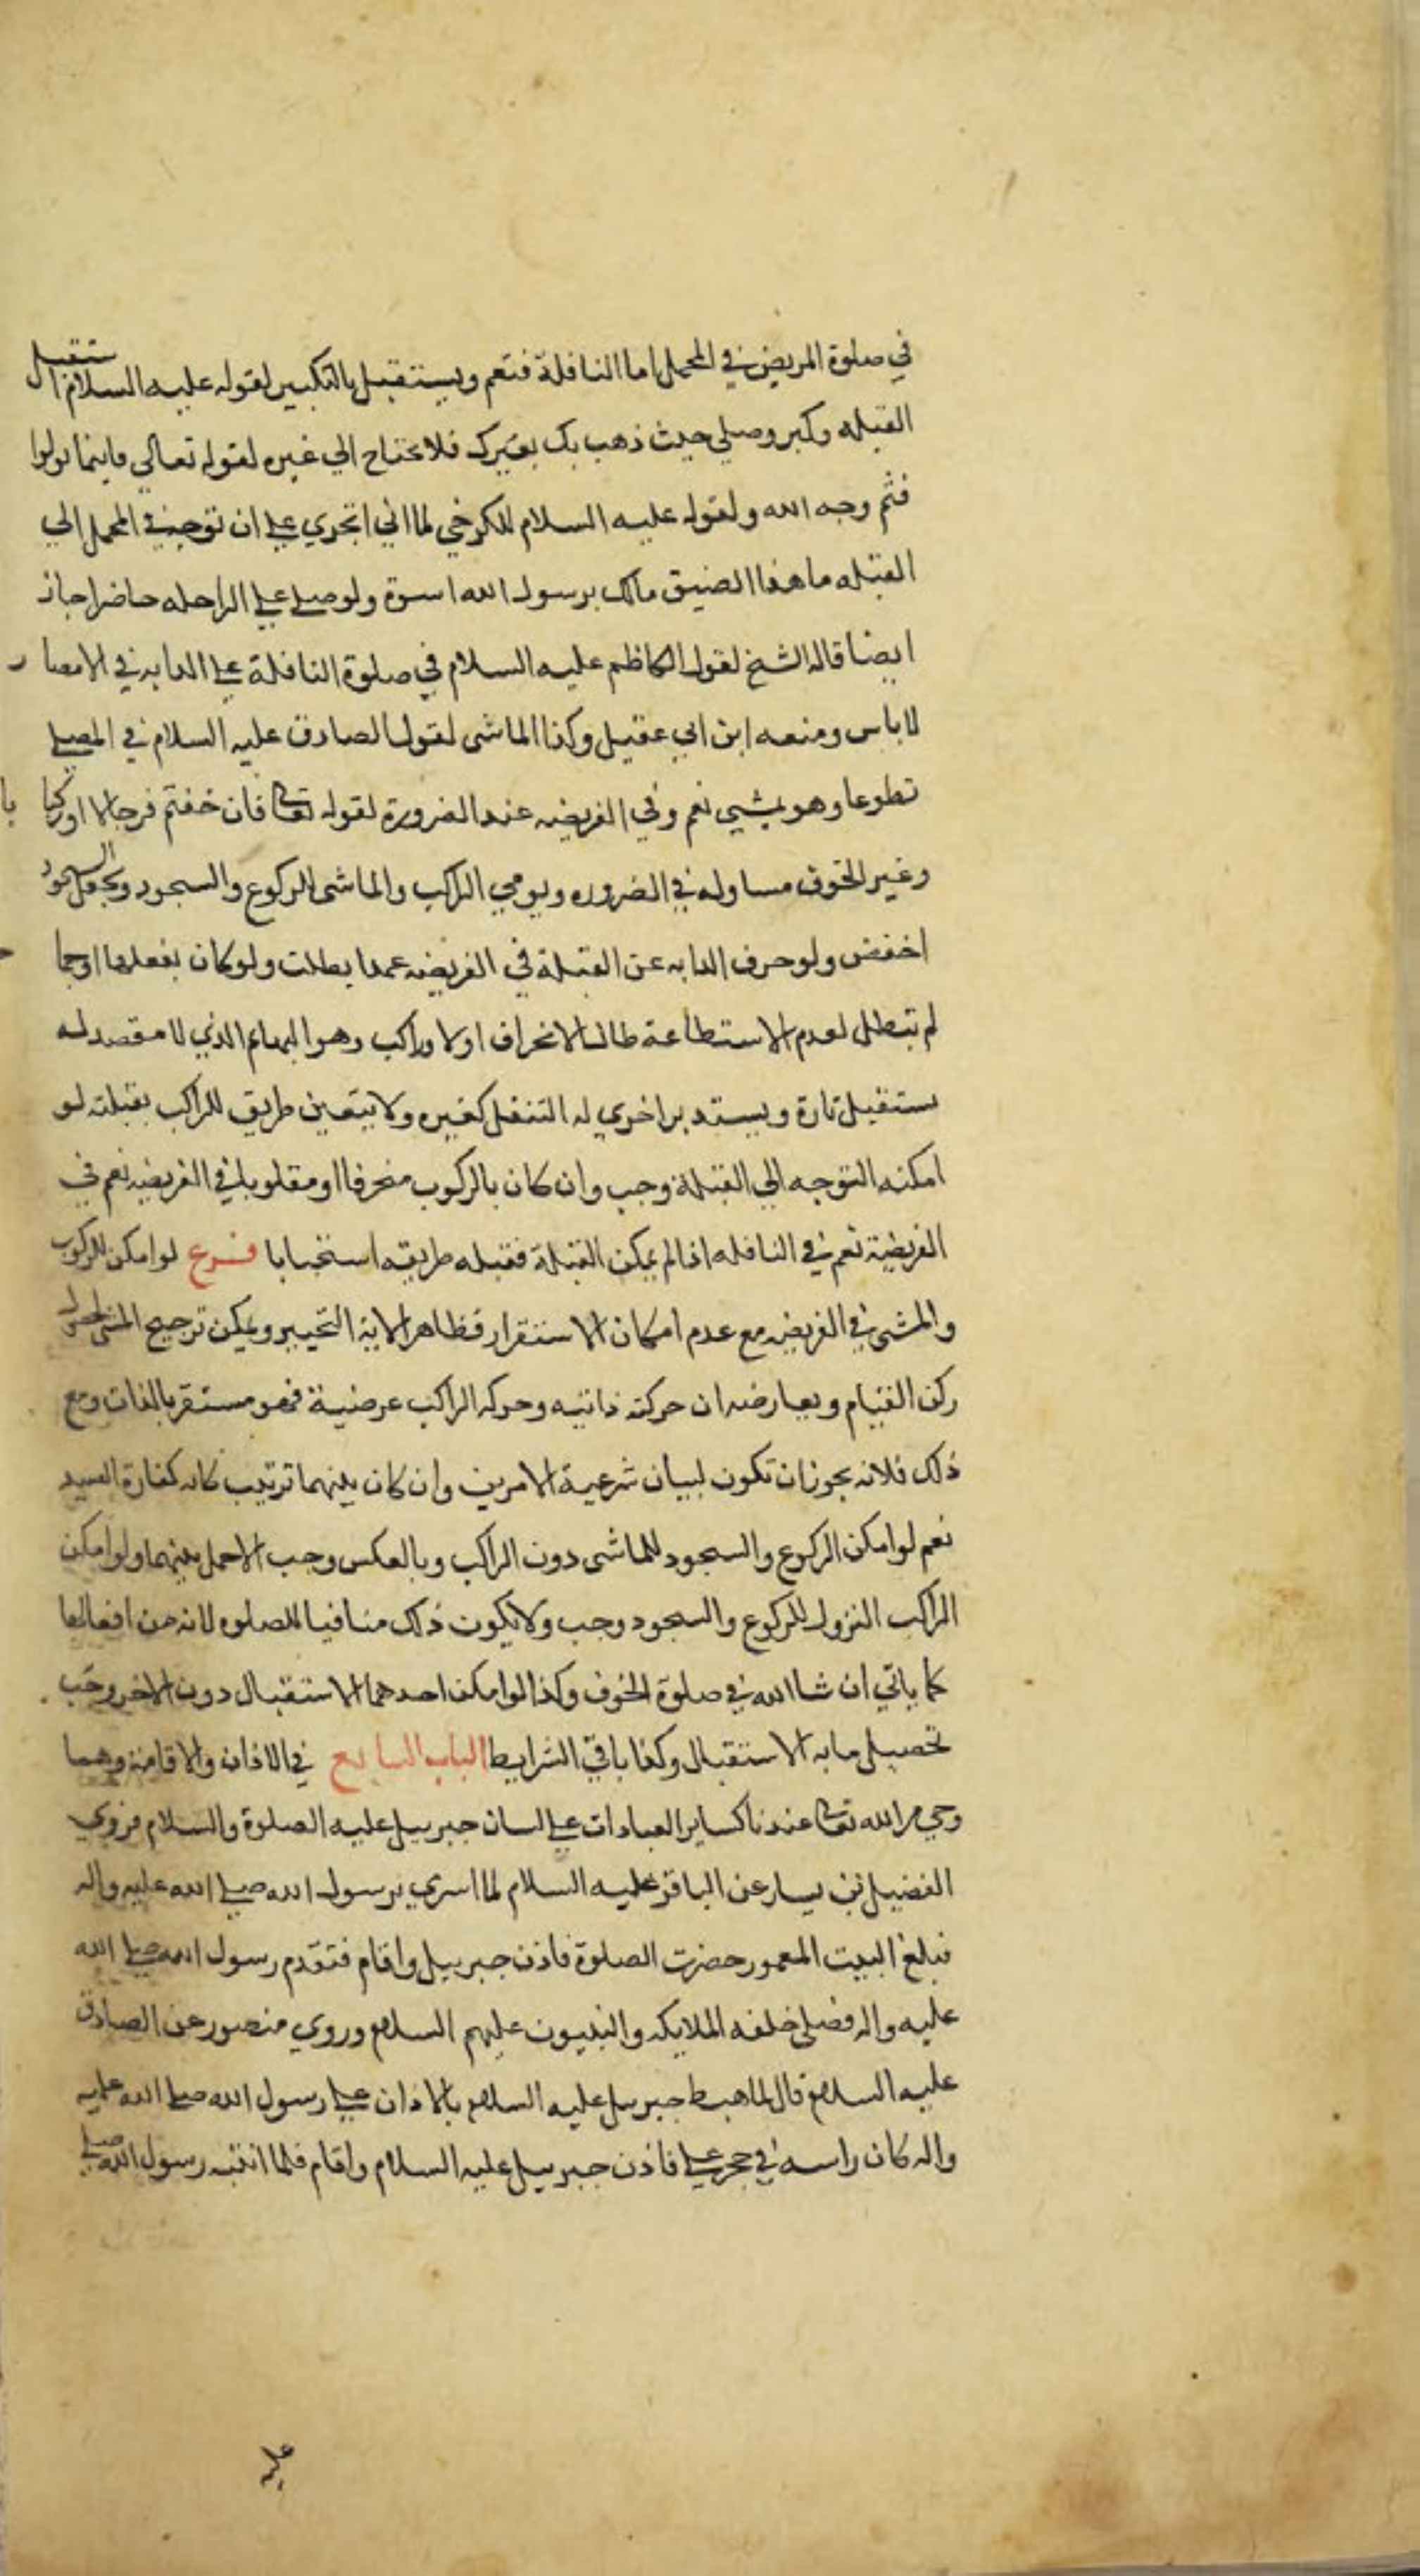 في صلوة المريض في المحمل اما النافلة فنعم ويستقبل بالتكبير لقوله عليه السلام استقبل
القبله وكبر وصلي حيث ذهب بك بعيرك فلا يحتاج الي غيره لقوله تعالي فاينما تولوا
فثم وجه الله ولقوله عليه السلام للكرخي لما اني اتحري علي ان توجه في المحمل الي
القبله ما هذا الضيق مالك برسول الله اسوة ولو صلي علي الراحله حاضرا جاز
ايضا قاله الشيخ لقول الكاظم عليه السلام في صلوة النافلة علي الدابه في الامصار
لا باس ومنعه ابن ابي عقيل وكذا الماشي لقول الصادق عليه السلام في المصلي
تطوعا وهو يمشي نعم وفي الفريضه عند الضرورة لقوله تعالي فان خفتم فرجالا او ركبا با
وغير الخوف مساو له في الضروره ويومي الراكب والماشي الركوع والسجود ويجعل السجود
اخفض ولو حرف الدابه عن القبلة في الفريضه عمدا بطلت ولو كان بفعلها او جما ح
لم تبطل لعدم الاستطاعة طال الانحراف اولا وراكب وهو الهمام الذي لا مقصد له
يستقبل تارة ويستدبر اخري له التنفل كغيره ولا يتعين طريق للراكب بقبلته لو
امكنه التوجه الي القبلة وجب وان كان بالركوب منحرفا او مقلوبا في الفريضه نعم في
الفريضة نعم في النافله اذا لم يمكن القبلة فقبله طريقه استحبابا فرع لو امكن الركوب
والمشي في الفريضه مع عدم امكان الاستقرار فظاهر الاية التخيير ويمكن ترجيح المشي لحصول
ركن القيام ويعارضه ان حركته ذاتيه وحركه الراكب عرضية فهو مستقر بالذات ومع
ذلك فلانه يجوز ان تكون لبيان شرعية الامرين وان كان بينهما ترتيب كانه كفارة الصيد
نعم لو امكن الركوع والسجود للماشي دون الراكب وبالعكس وجب الاكمل بينهما ولو امكن
الراكب النزول للركوع والسجود وجب ولا يكون ذلك منافيا للصلوه لانه من افعالها
كما ياتي ان شا الله في صلوة الخوف وكذا لو امكن احدهما الاستقبال دون الاخر وجب
تحصيل ما به الاستقبال وكذا باقي الشرايط الباب السابع في الاذان والاقامة وهما
وحي من الله تعالي عندنا كساير العبادات علي لسان جبرييل عليه الصلوة والسلام فروي
الفضيل بن يسار عن الباقر عليه السلام لما اسري برسول الله صلي الله عليه واله
فبلغ البيت المعمور حضرت الصلوة فاذن جبرييل واقام فتقدم رسول الله صلي الله
عليه واله فصلي خلفه الملايكه والنبيون عليهم السلام وروي منصور عن الصادق
عليه السلام قال لما هبط جبرييل عليه السلام بالاذان علي رسول الله صلي الله عليه
واله كان راسه في حجر علي فاذن جبرييل عليه السلام واقام فلما انتبه رسول الله صلي